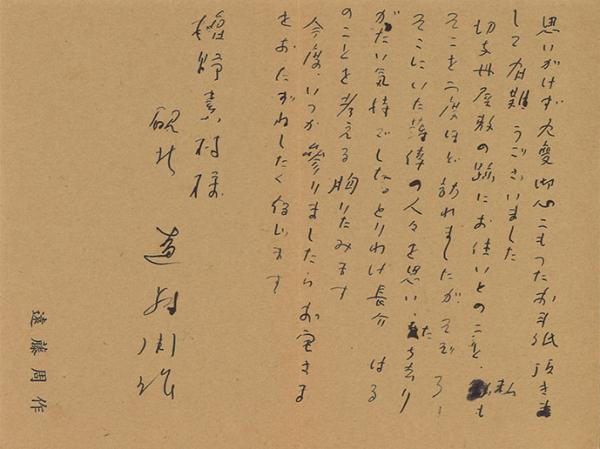 思いがけず大変御心こもつたお手紙頂きま
して有難うございました
切支丹屋敷の跡にお住いとのこと、私も
そこを二度ほど訪れましたが そぞろ
そこにいた薄倖の人々を思い、たち去り
がたい気持でした。とりわけ長介 はる
のことを考える胸いたみます
今度、いつか参りましたらお宅さま
をおたずねしたく存じます
野 村様
硯北 遠藤周作
遠藤周作